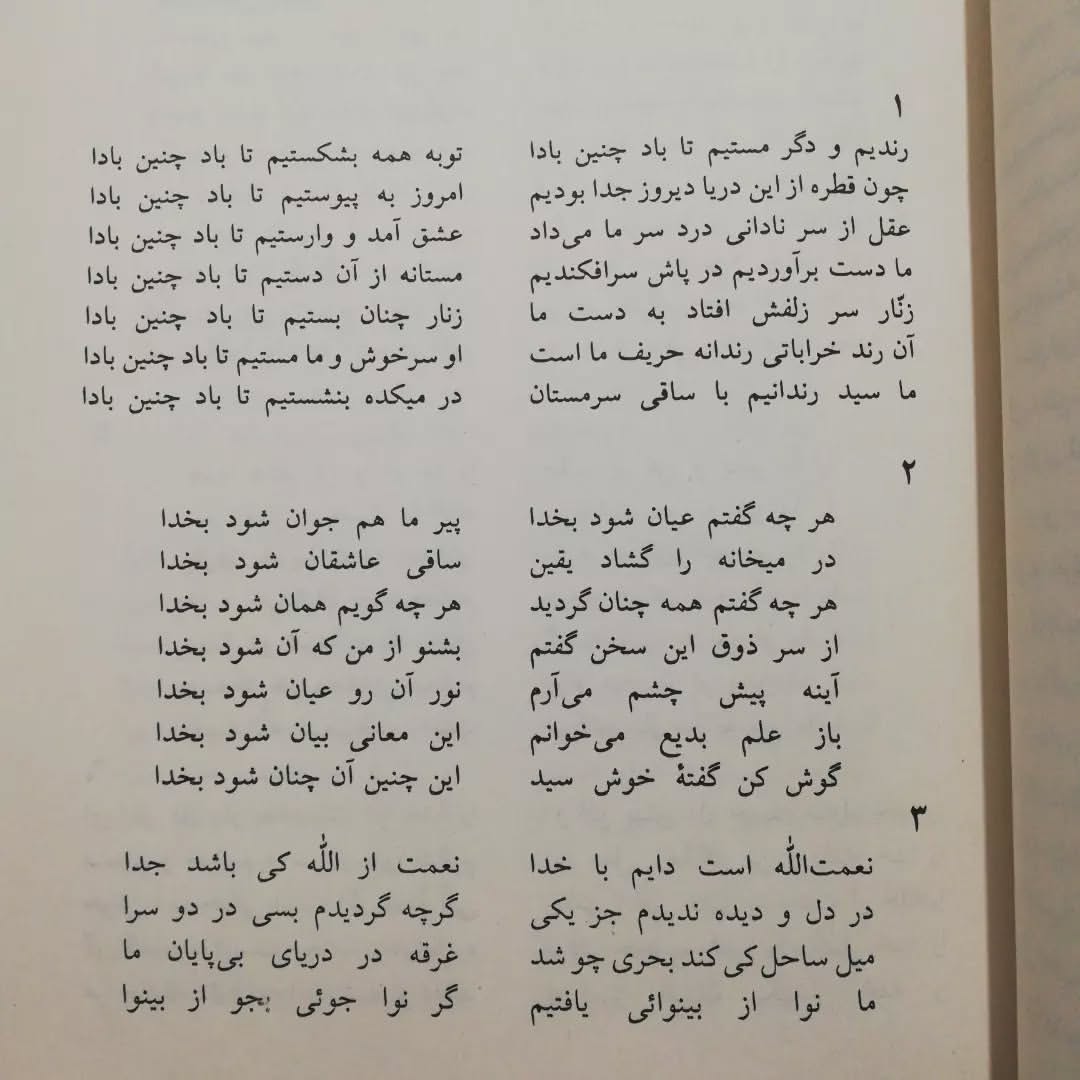 ۱
رندیم و دگر مستیم تا باد چنین بادا توبه همه بشکستیم تا باد چنین بادا
چون قطره از این دریا دیروز جدا بودیم امروز به پیوستیم تا باد چنین بادا
عقل از سر نادانی درد سر ما می‌داد عشق آمد و وارستیم تا باد چنین بادا
ما دست برآوردیم در پاش سرافکندیم مستانه از آن دستیم تا باد چنین بادا
زنّار سر زلفش افتاد به دست ما زنار چنان بستیم تا باد چنین بادا
آن رند خراباتی رندانه حریف ما است او سرخوش و ما مستیم تا باد چنین بادا
ما سید رندانیم با ساقی سرمستان در میکده بنشستیم تا باد چنین بادا
۲
هر چه گفتم عیان شود بخدا پیر ما هم جوان شود بخدا
در میخانه را گشاد یقین ساقی عاشقان شود بخدا
هر چه گفتم همه چنان گردید هر چه گویم همان شود بخدا
از سر ذوق این سخن گفتم بشنو از من که آن شود بخدا
آینه پیش چشم می‌آرم نور آن رو عیان شود بخدا
باز علم بدیع می‌خوانم این معانی بیان شود بخدا
گوش کن گفتهٔ خوش سید این چنین آن چنان شود بخدا
۳
نعمت‌اللّٰه است دایم با خدا نعمت از اللّٰه کی باشد جدا
در دل و دیده ندیدم جز یکی گرچه گردیدم بسی در دو سرا
میل ساحل کی کند بحری چو شد غرقه در دریای بی‌پایان ما
ما نوا از بینوائی یافتیم گر نوا جوئی بجو از بینوا